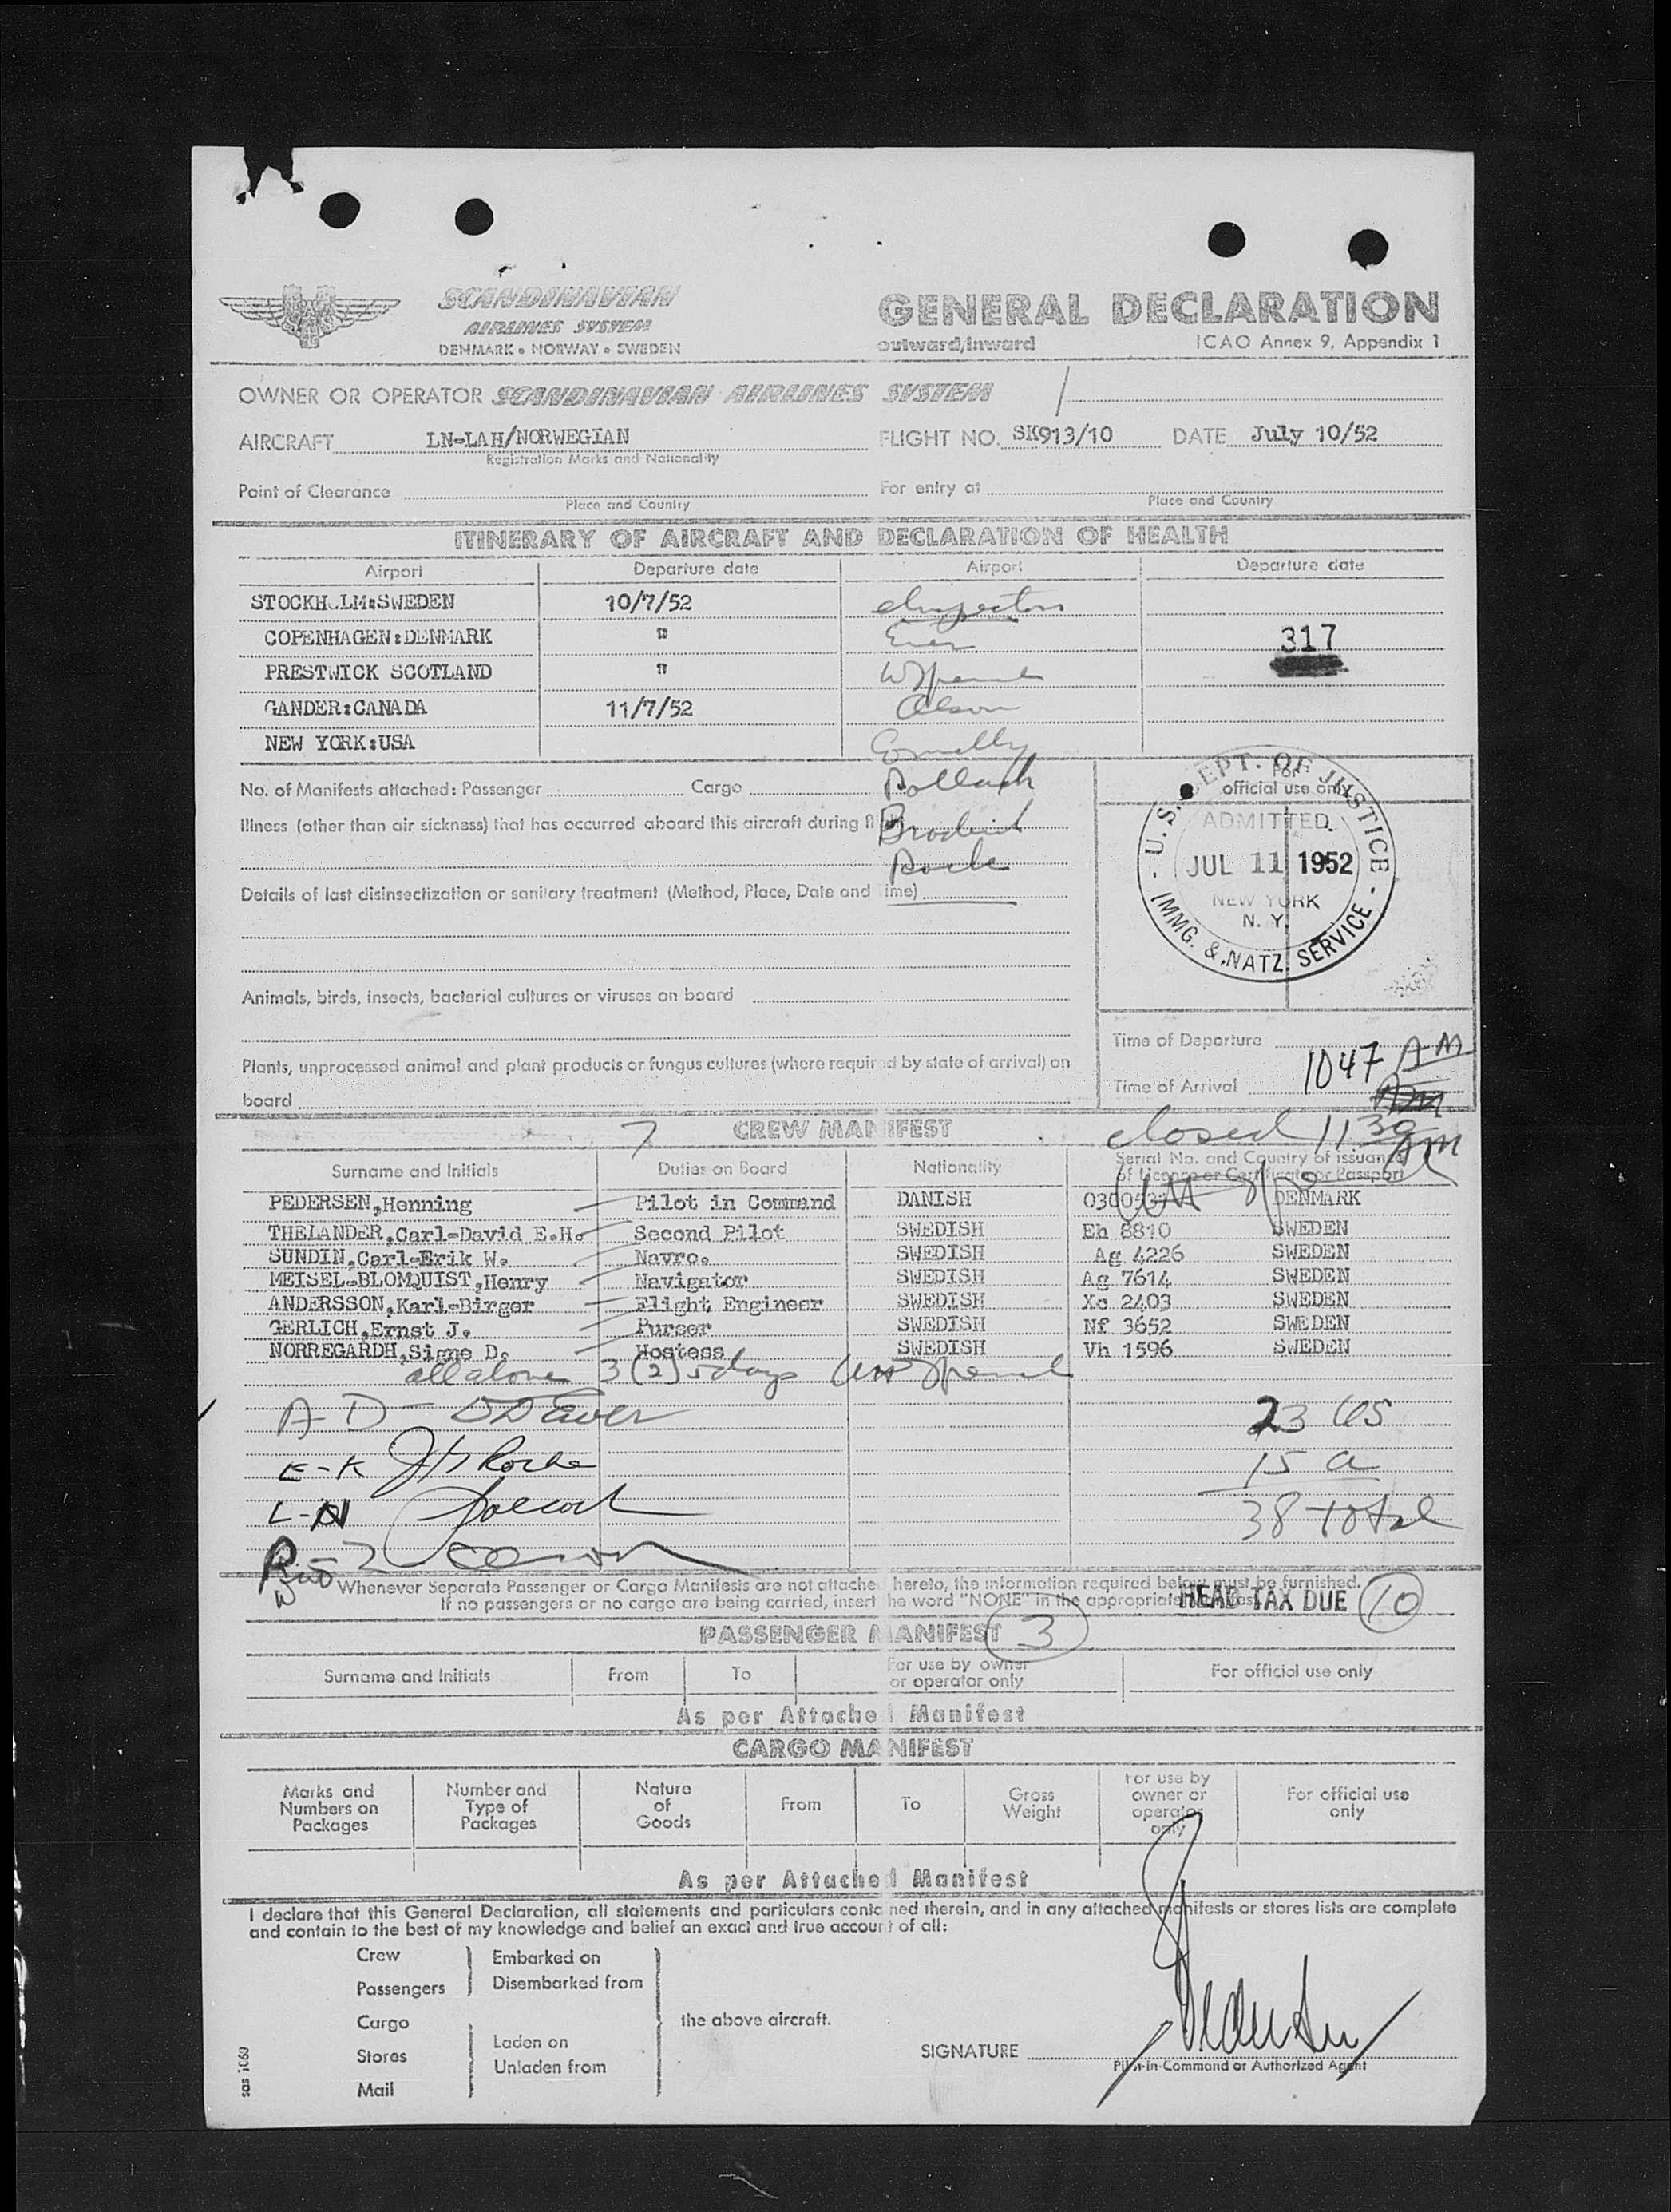 SCANDINAVIAN
AIRLINES SYSTEM
DENMARK • NORWAY • SWEDEN
GENERAL DECLARATION
outward, inward
ICAO Annex 9, Appendix 1
OWNER OR OPERATOR SCANDINAVIAN AIRLINES SYSTEM
AIRCRAFT LN-LAH/NORWEGIAN FLIGHT NO. SK913/10 DATE July 10/52
Registration Marks and Nationality
Point of Clearance For entry at
Place and Country Place and Country
ITINERARY OF AIRCRAFT AND DECLARATION OF HEALTH
Airport Departure date Airport Departure date
STOCKHOLM:SWEDEN 10/7/52 Inspectors
COPENHAGEN:DENMARK " 317
PRESTWICK SCOTLAND "
GANDER:CANADA 11/7/52 Olson
NEW YORK:USA Connelly
No. of Manifests attached: Passenger Cargo Pollack
For
official use only
Illness (other than air sickness) that has occurred aboard this aircraft during Broderick
Roche
Details of last disinsectization or sanitary treatment (Method, Place, Date and Time)
U.S. DEPT. OF JUSTICE
ADMITTED
JUL 11 1952
NEW YORK
N. Y.
IMMG. & NATZ. SERVICE
Animals, birds, insects, bacterial cultures or viruses on board
Plants, unprocessed animal and plant products or fungus cultures (where required by state of arrival) on
board
Time of Departure
Time of Arrival 1047 AM
closed 11 30 AM
7 CREW MANIFEST
Surname and Initials Duties on Board Nationality Serial No. and Country of issuance
of Licence or Certificate or Passport
PEDERSEN,Henning Pilot in Command DANISH DENMARK
THELANDER,Carl-David E.H. Second Pilot SWEDISH Eh 8810 SWEDEN
SUNDIN,Carl-Erik W. Navro. SWEDISH Ag 4226 SWEDEN
MEISEL-BLOMQUIST,Henry Navigator SWEDISH Ag 7614 SWEDEN
ANDERSSON,Karl-Birger Flight Engineer SWEDISH Xc 2403 SWEDEN
GERLICH,Ernst J. Purser SWEDISH Nf 3652 SWEDEN
NORREGARDH,Signe D. Hostess SWEDISH Vh 1596 SWEDEN
all above 3(2) 5 days
A-D 23 US
E-K Roche 15 a
L-N 38 total
Whenever Separate Passenger or Cargo Manifests are not attached hereto, the information required below must be furnished.
If no passengers or no cargo are being carried, insert the word "NONE" in the appropriate
HEAD TAX DUE 10
PASSENGER MANIFEST 3
Surname and Initials From To For use by owner
or operator only For official use only
As per Attached Manifest
CARGO MANIFEST
Marks and
Numbers on
Packages
Number and
Type of
Packages
Nature
of
Goods
From
To
Gross
Weight
For use by
owner or
operator
only
For official use
only
As per Attached Manifest
I declare that this General Declaration, all statements and particulars contained therein, and in any attached manifests or stores lists are complete
and contain to the best of my knowledge and belief an exact and true account of all:
Crew
Passengers
Embarked on
Disembarked from
Cargo
Stores
Mail
Laden on
Unladen from
the above aircraft.
SIGNATURE
Pilot-in-Command or Authorized Agent
sas 1060